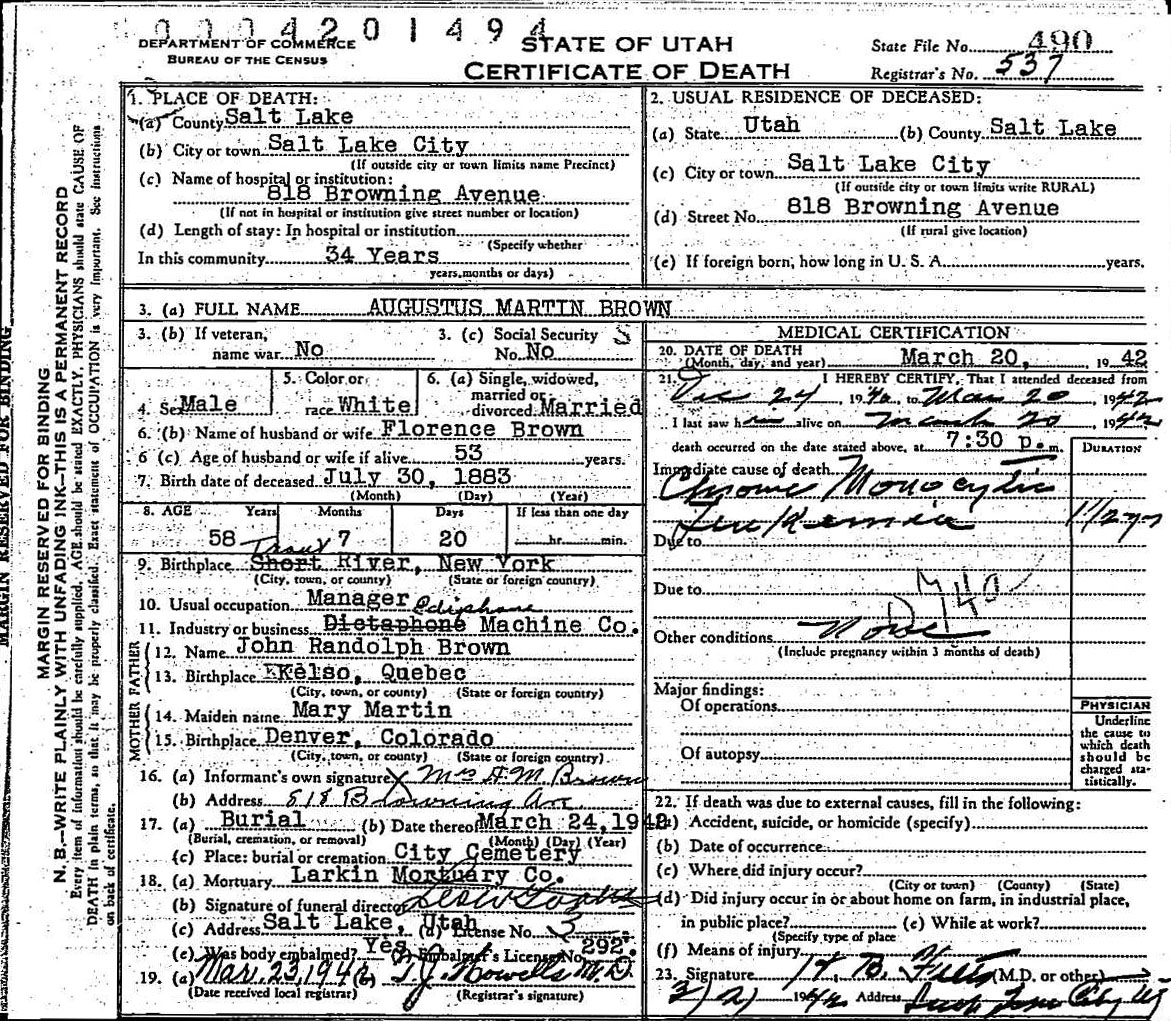 0004201494
DEPARTMENT OF COMMERCE
BUREAU OF THE CENSUS
STATE OF UTAH
CERTIFICATE OF DEATH
State File No. 490
Registrar's No. 537
MARGIN RESERVED FOR BINDING
MARGIN RESERVED FOR BINDING
N. B.—WRITE PLAINLY WITH UNFADING INK—THIS IS A PERMANENT RECORD
Every item of information should be carefully supplied. AGE should be stated EXACTLY. PHYSICIANS should state CAUSE OF
DEATH in plain terms, so that it may be properly classified. Exact statement of OCCUPATION is very important. See instructions
on back of certificate.
1. PLACE OF DEATH:
(a) County Salt Lake
(b) City or town Salt Lake City
(If outside city or town limits name Precinct)
(c) Name of hospital or institution:
818 Browning Avenue
(If not in hospital or institution give street number or location)
(d) Length of stay: In hospital or institution
(Specify whether
In this community 34 Years
years, months or days)
2. USUAL RESIDENCE OF DECEASED:
(a) State Utah (b) County Salt Lake
(c) City or town Salt Lake City
(If outside city or town limits write RURAL)
(d) Street No. 818 Browning Avenue
(If rural give location)
(e) If foreign born, how long in U. S. A. years.
3. (a) FULL NAME AUGUSTUS MARTIN BROWN
3. (b) If veteran, 3. (c) Social Security S
name war No No. No
4. Sex Male 5. Color or race White 6. (a) Single, widowed, married or divorced Married
6. (b) Name of husband or wife Florence Brown
6 (c) Age of husband or wife if alive 53 years.
7. Birth date of deceased July 30, 1883
(Month) (Day) (Year)
8. AGE Years Months Days If less than one day
58 7 20 hr. min.
Trout
9. Birthplace Short River, New York
(City, town, or county) (State or foreign country)
10. Usual occupation Manager Ediphone
11. Industry or business Dictaphone Machine Co.
FATHER
12. Name John Randolph Brown
13. Birthplace KKelso, Quebec
(City, town, or county) (State or foreign country)
MOTHER
14. Maiden name Mary Martin
15. Birthplace Denver, Colorado
(City, town, or county) (State or foreign country)
16. (a) Informant's own signature X Mrs A. M. Brown
(b) Address 818 Browning Ave
17. (a) Burial (b) Date thereof March 24, 1942
(Burial, cremation, or removal) (Month) (Day) (Year)
(c) Place: burial or cremation City Cemetery
18. (a) Mortuary Larkin Mortuary Co.
(b) Signature of funeral director
(c) Address Salt Lake, Utah (d) License No. 3
(e) Was body embalmed? Yes (f) Embalmer's License No. 292.
19. (a) Mar. 23, 1942 (b) T. J. Howells M.D.
(Date received local registrar) (Registrar's signature)
MEDICAL CERTIFICATION
20. DATE OF DEATH
(Month, day, and year) March 20, 1942
21. I HEREBY CERTIFY, That I attended deceased from
Dec 24, 1940, to Mar 20, 1942
I last saw him alive on March 20, 1942
death occurred on the date stated above, at 7:30 p. m.
DURATION
Immediate cause of death
Chronic Monocytic
Leukemia 1 1/2 yr
Due to
Due to
740
Other conditions None
(Include pregnancy within 3 months of death)
Major findings:
Of operations
Of autopsy
PHYSICIAN
Underline
the cause to
which death
should be
charged sta-
tistically.
22. If death was due to external causes, fill in the following:
(a) Accident, suicide, or homicide (specify)
(b) Date of occurrence
(c) Where did injury occur?
(City or town) (County) (State)
(d) Did injury occur in or about home on farm, in industrial place,
in public place? (e) While at work?
(Specify type of place
(f) Means of injury
23. Signature (M.D. or other)
3/21 1942 Address